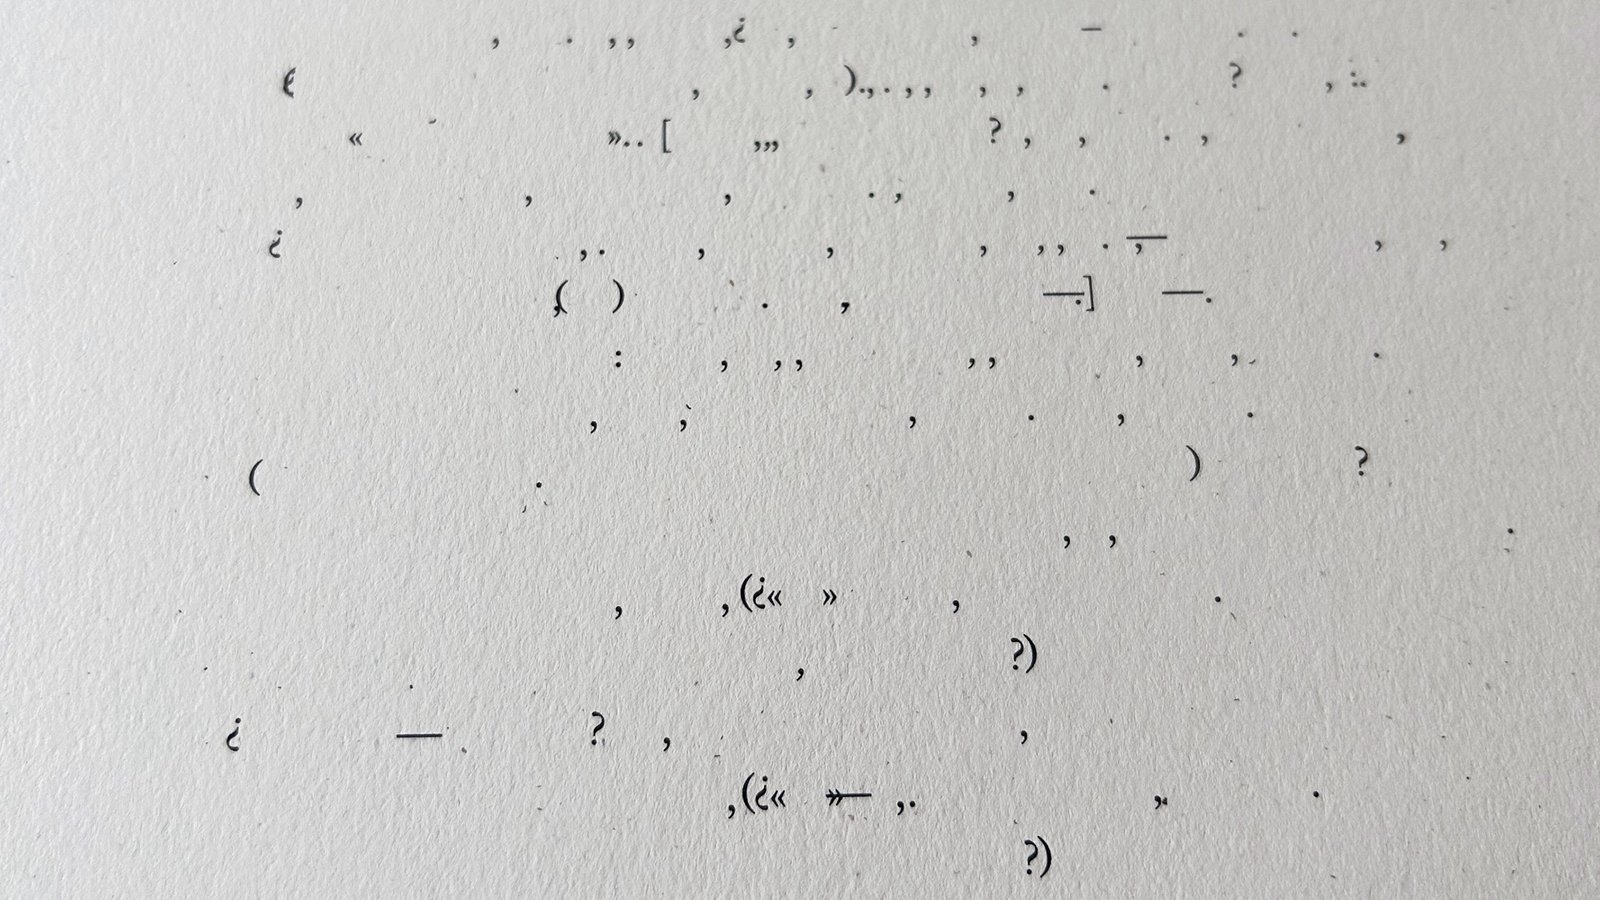 , . , , ,¿ , - , — . .
( , , ) . , . , , , , . ? , : .
« » . . [ , , , ? , , . , ,
, , , . , , .
¿ , . , , , , , . , — , ,
, ( ) . , — . ] — .
: , , , , , , , .
, , , . , .
( . ) ?
, , .
, , (¿« » , .
, ?)
¿ — ? , ,
, (¿« » — , . , .
?)